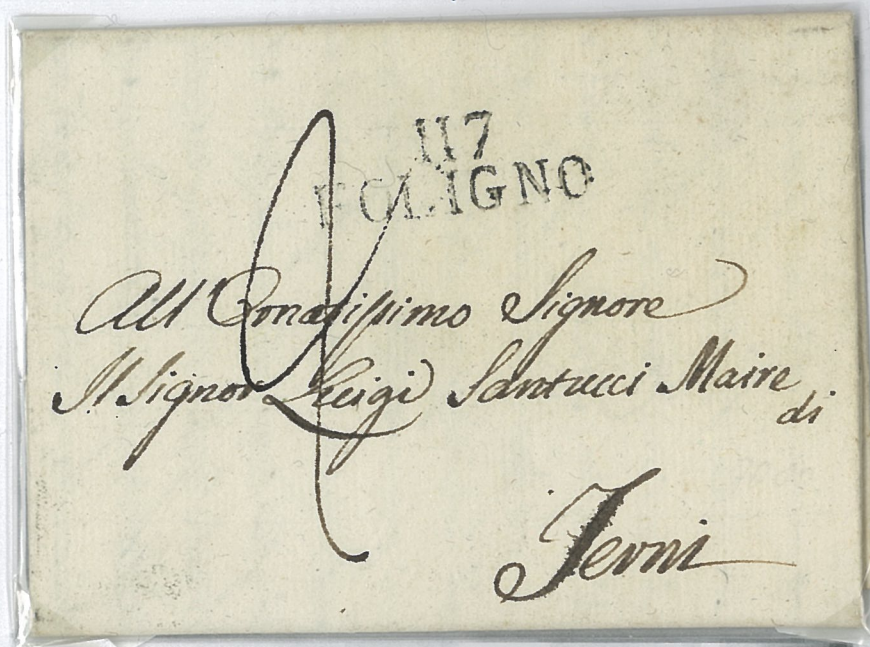 117
FOLIGNO
All' Ornatissimo Signore
Il Signor Luigi Santucci Maire
di
Terni